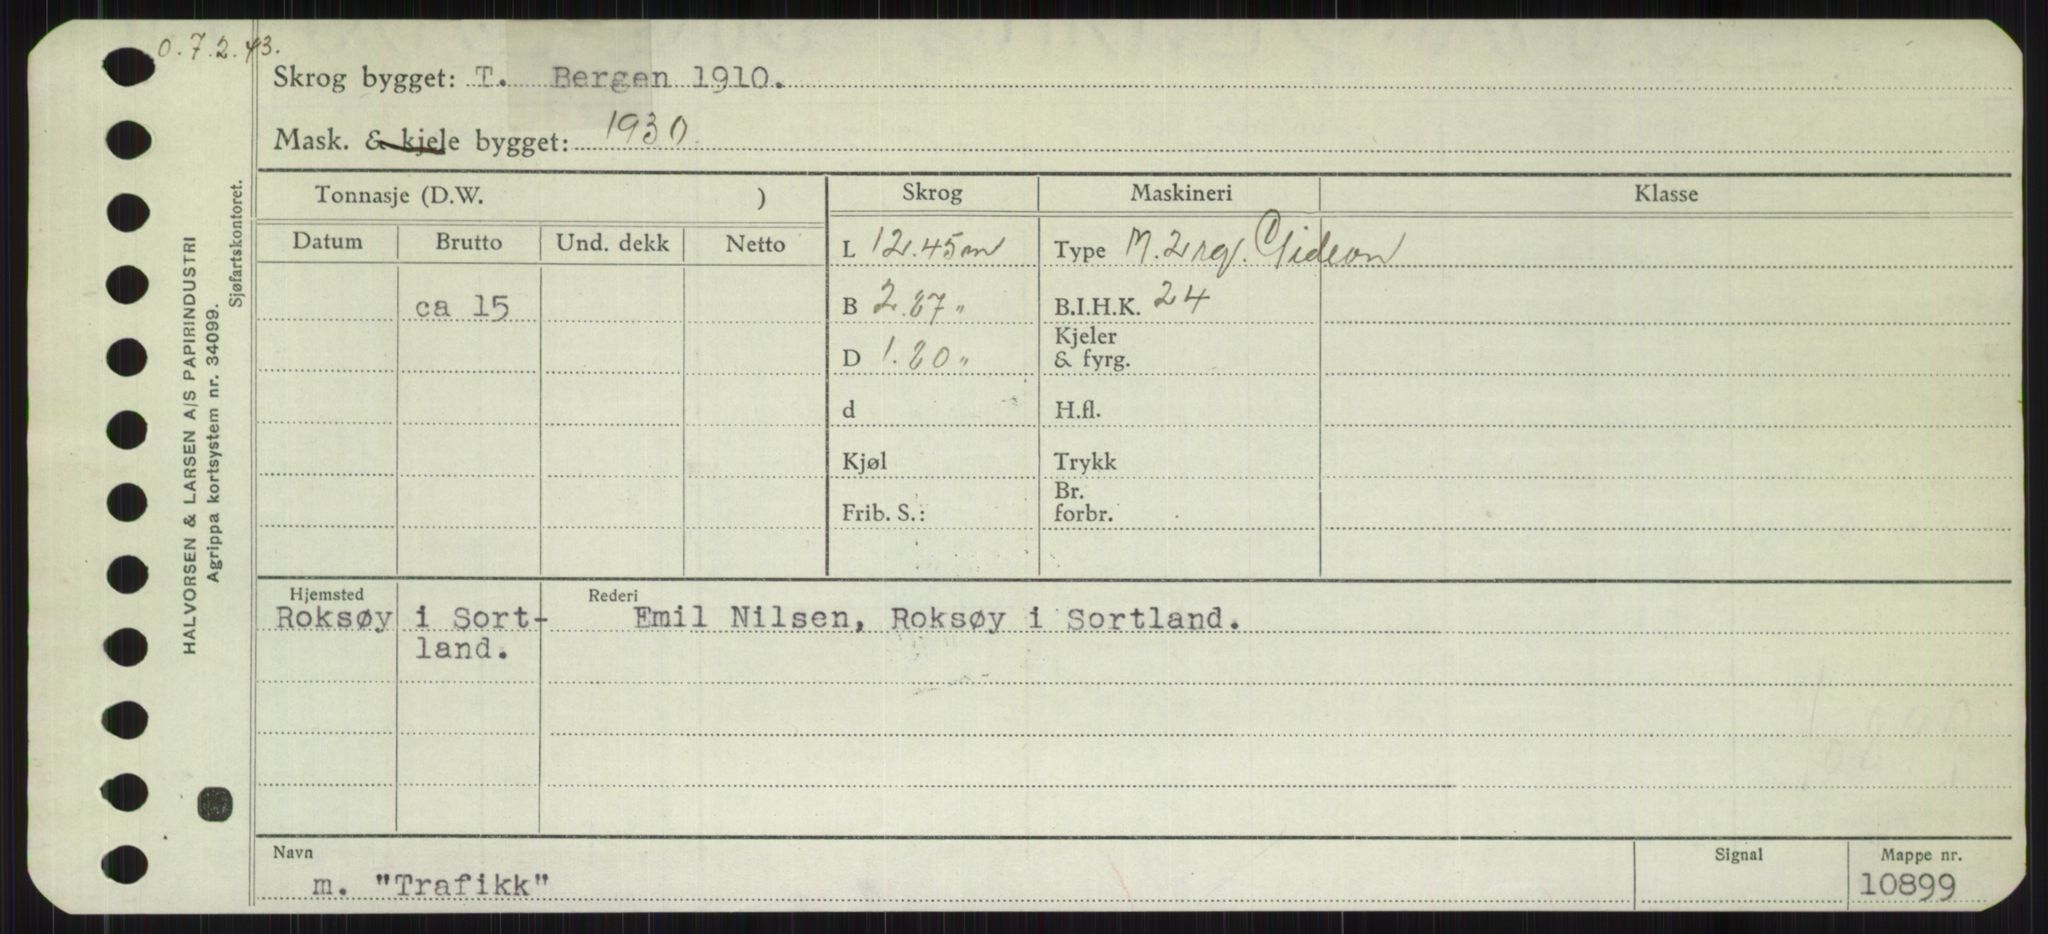 O.7.2.43.
Skrog bygget: T. Bergen 1910.
Mask. & kjele bygget: 1930.
HALVORSEN & LARSEN A/S PAPIRINDUSTRI
Agrippa kortsystem nr. 34099.
Sjøfartskontoret.
Tonnasje (D.W. ) Skrog Maskineri Klasse
Datum Brutto Und. dekk Netto
L 12.45 m Type M. 2 Gideon
ca 15 B 2.87 " B.I.H.K. 24
D 1.80 " Kjeler
& fyrg.
d H.fl.
Kjøl Trykk
Frib. S.: Br.
forbr.
Hjemsted Rederi
Roksøy i Sort- Emil Nilsen, Roksøy i Sortland.
land.
Navn Signal Mappe nr.
m. "Trafikk" 10899